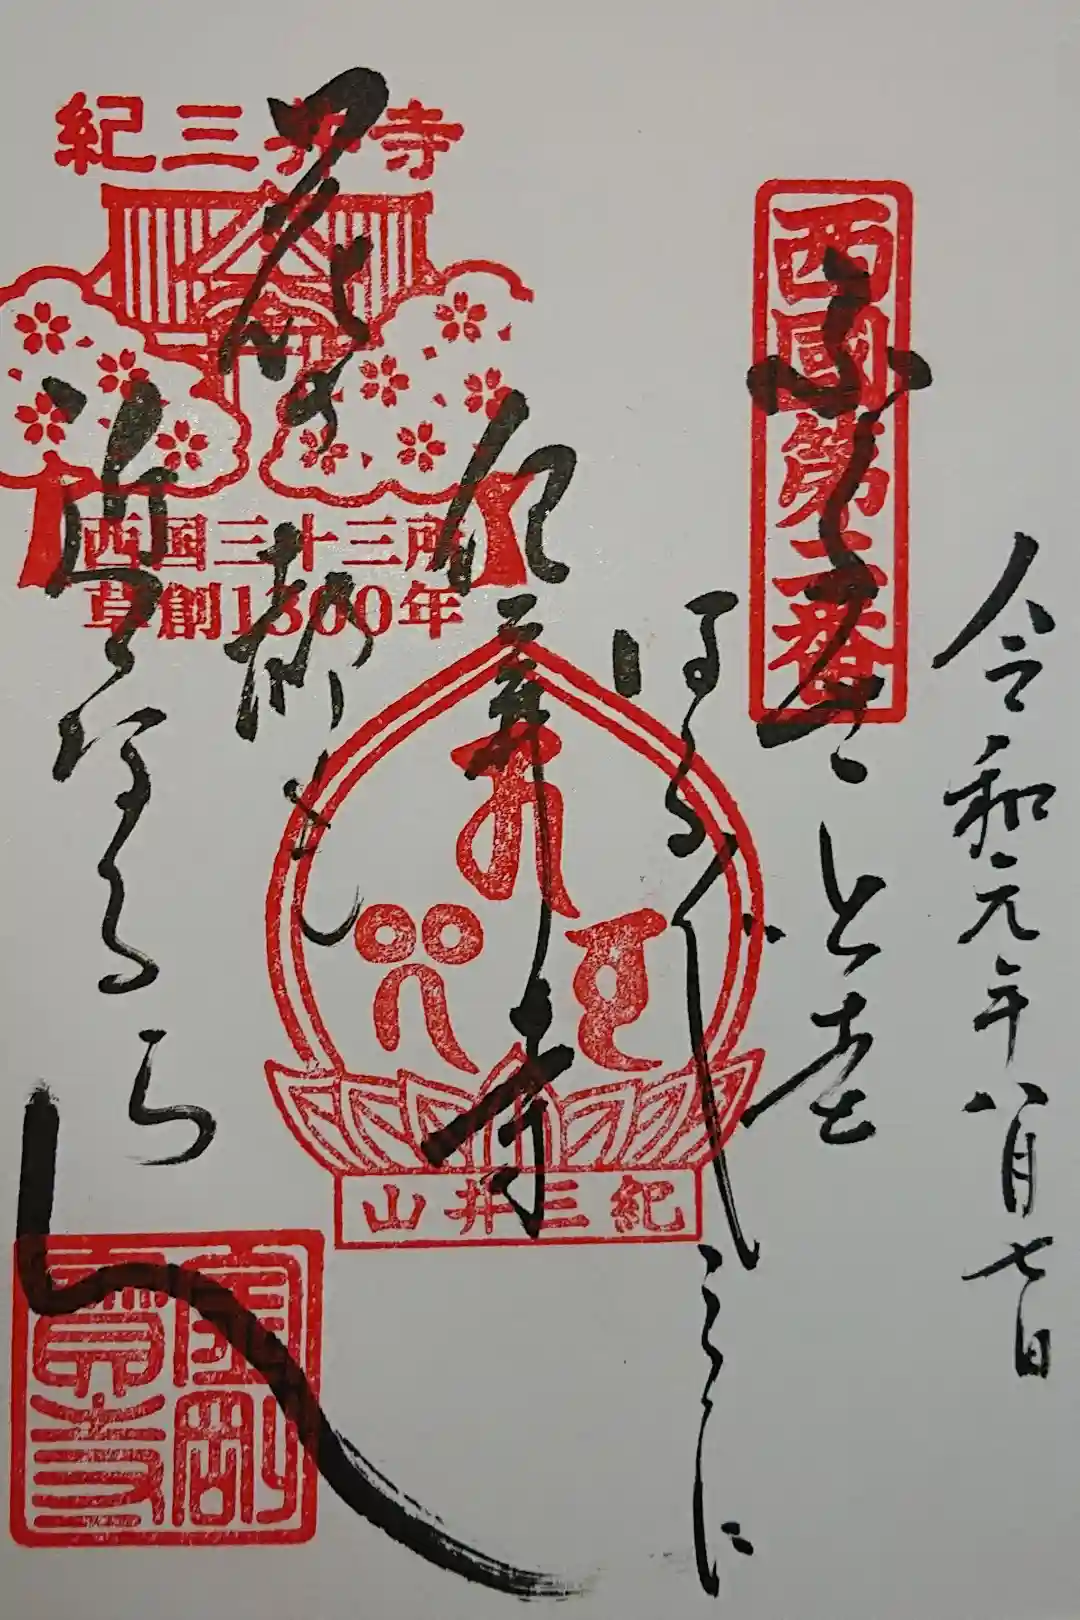 令和元年八月七日
西國第二番
ふるさとを
はるばるここに
紀三井寺
花の都も
近くなるらん
紀三井寺
西国三十三所
草創1300年
紀三井山
金剛寶寺